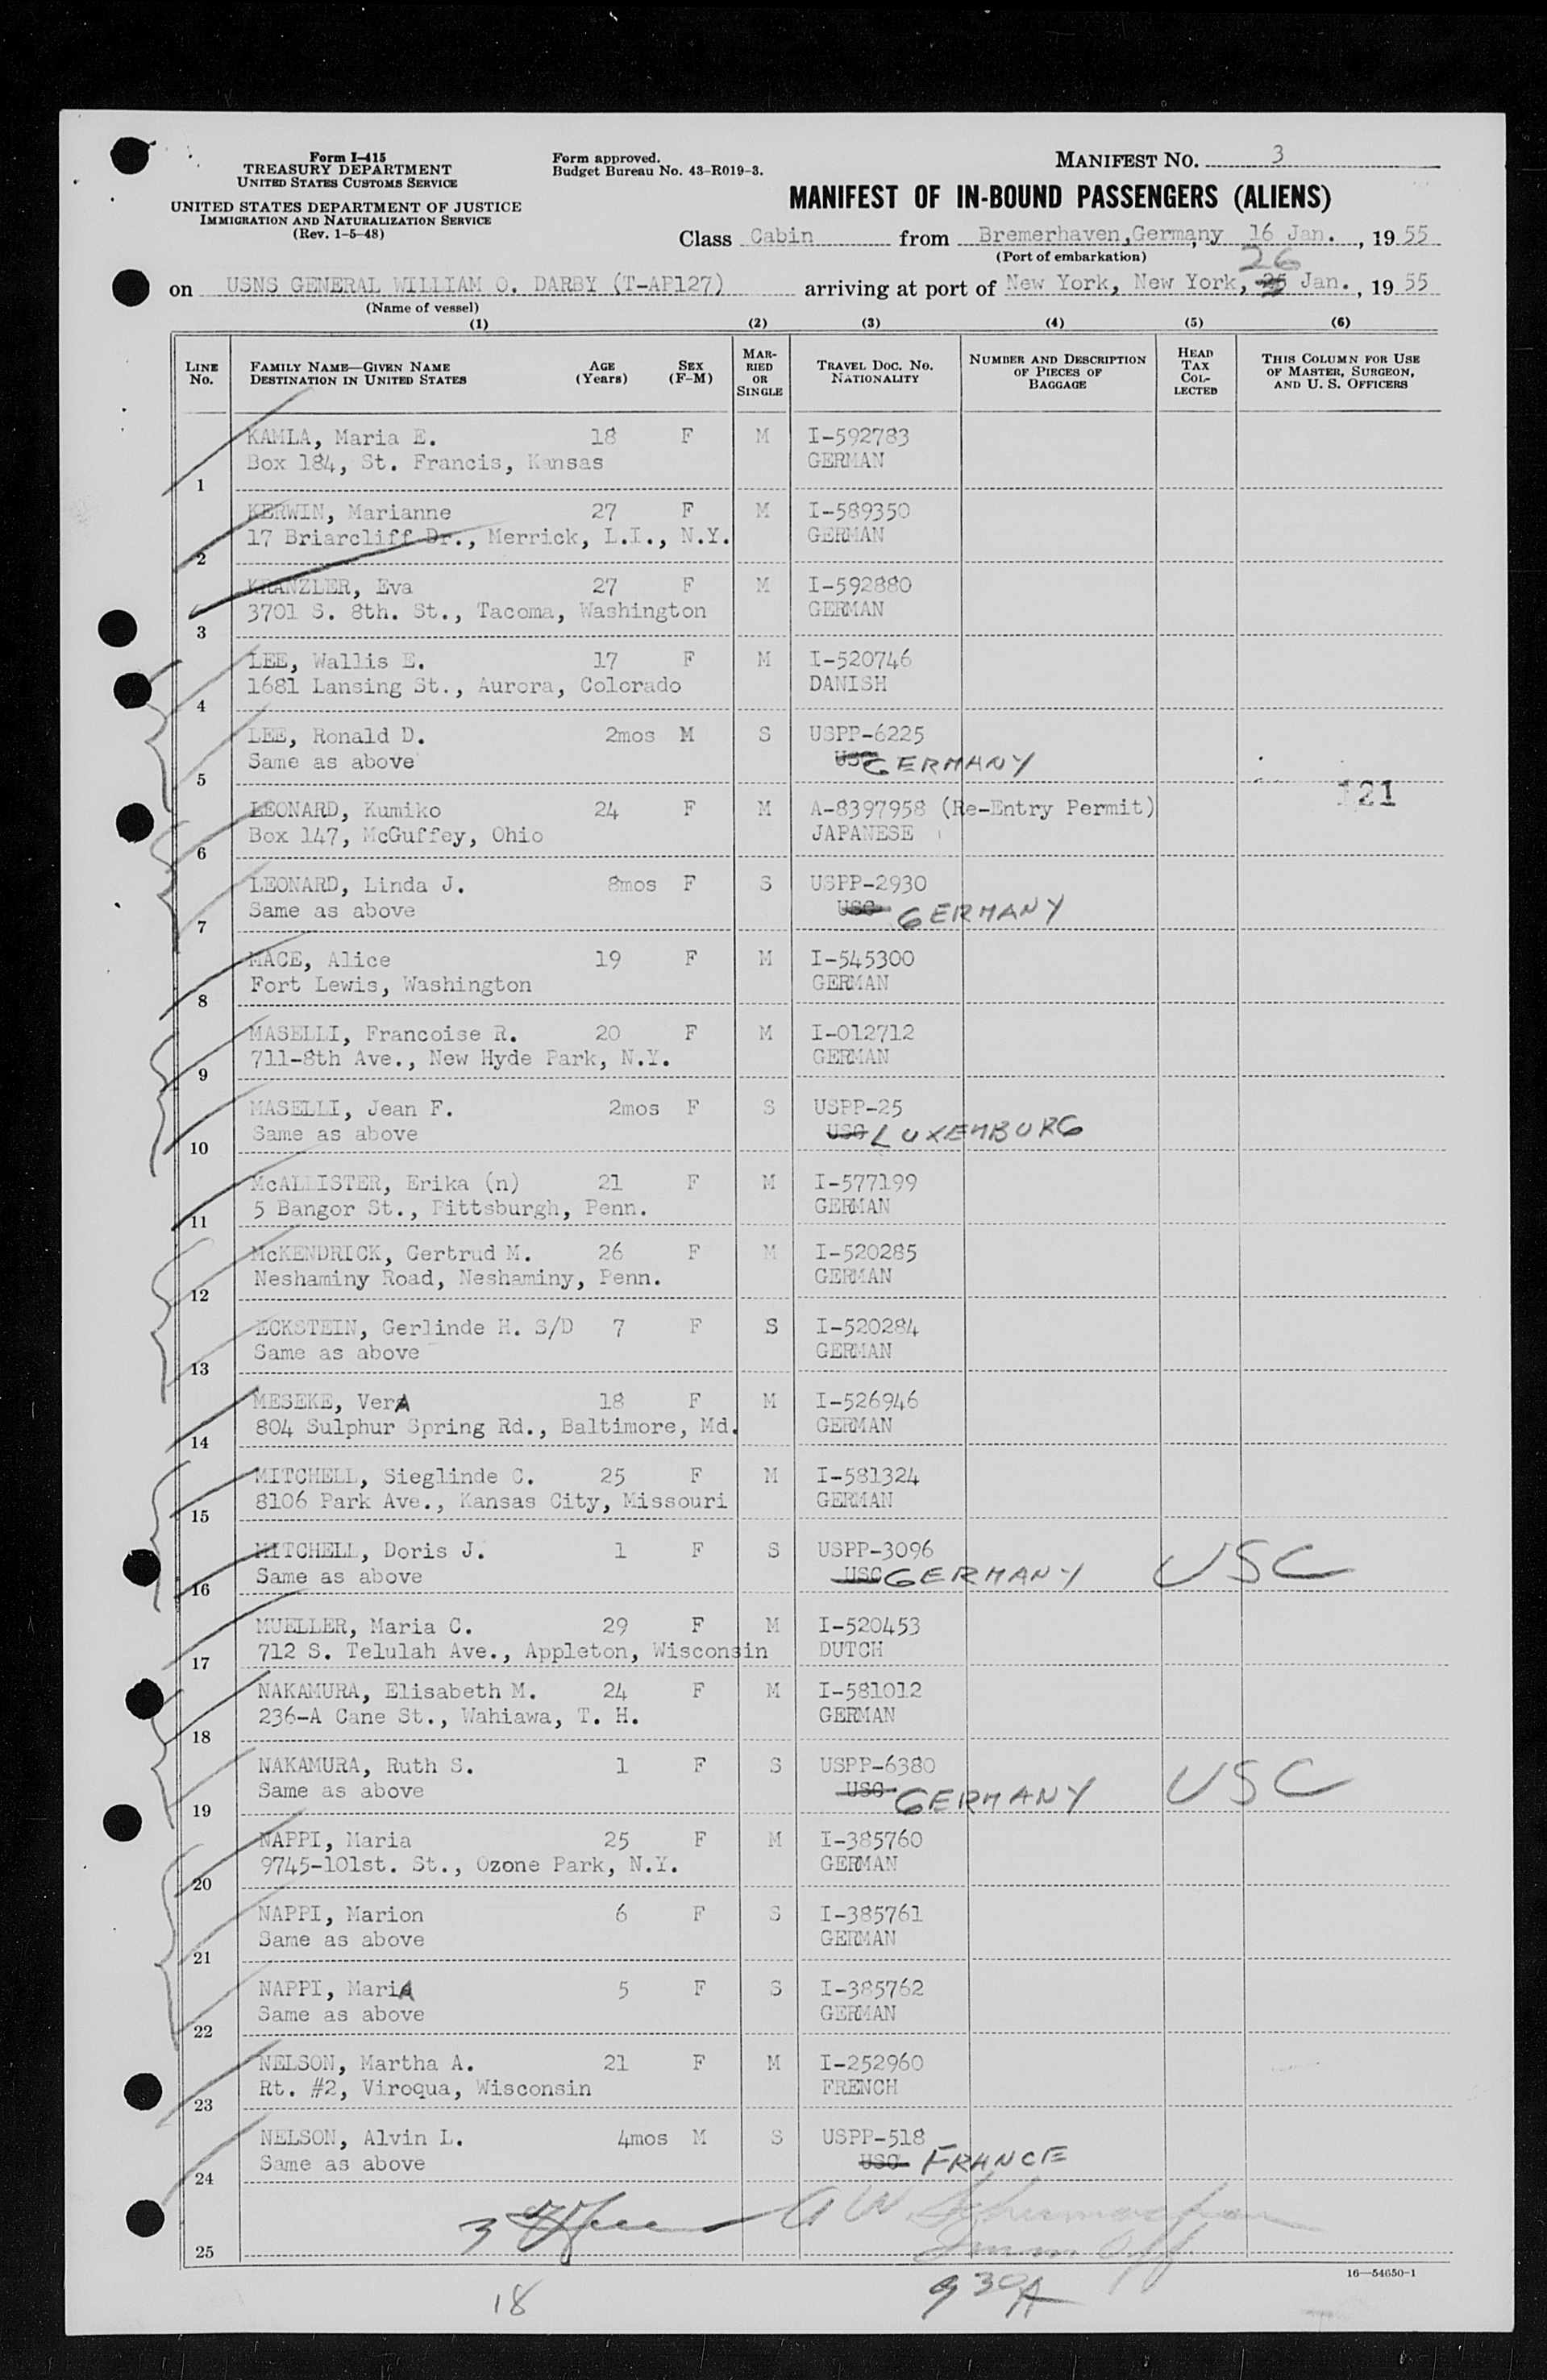 Form I-415
TREASURY DEPARTMENT
UNITED STATES CUSTOMS SERVICE
UNITED STATES DEPARTMENT OF JUSTICE
IMMIGRATION AND NATURALIZATION SERVICE
(Rev. 1-5-48)
Form approved.
Budget Bureau No. 43-R019-3.
MANIFEST NO. 3
MANIFEST OF IN-BOUND PASSENGERS (ALIENS)
Class Cabin from Bremerhaven, Germany 16 Jan., 1955
(Port of embarkation)
26
on USNS GENERAL WILLIAM O. DARBY (T-AP127) arriving at port of New York, New York, 25 Jan., 1955
(Name of vessel)
(1) (2) (3) (4) (5) (6)
LINE No. FAMILY NAME—GIVEN NAME DESTINATION IN UNITED STATES AGE (Years) SEX (F-M) MARRIED OR SINGLE TRAVEL DOC. NO. NATIONALITY NUMBER AND DESCRIPTION OF PIECES OF BAGGAGE HEAD TAX COLLECTED THIS COLUMN FOR USE OF MASTER, SURGEON, AND U. S. OFFICERS
KAMLA, Maria E. 18 F M I-592783
Box 184, St. Francis, Kansas GERMAN
1
KERWIN, Marianne 27 F M I-589350
17 Briarcliff Dr., Merrick, L.I., N.Y. GERMAN
2
KRANZLER, Eva 27 F M I-592880
3701 S. 8th. St., Tacoma, Washington GERMAN
3
LEE, Wallis E. 17 F M I-520746
1681 Lansing St., Aurora, Colorado DANISH
4
LEE, Ronald D. 2mos M S USPP-6225
Same as above USC GERMANY
5
121
LEONARD, Kumiko 24 F M A-8397958 (Re-Entry Permit)
Box 147, McGuffey, Ohio JAPANESE
6
LEONARD, Linda J. 8mos F S USPP-2930
Same as above USC GERMANY
7
MACE, Alice 19 F M I-545300
Fort Lewis, Washington GERMAN
8
MASELLI, Francoise R. 20 F M I-012712
711-8th Ave., New Hyde Park, N.Y. GERMAN
9
MASELLI, Jean F. 2mos F S USPP-25
Same as above USC LUXEMBURG
10
McALLISTER, Erika (n) 21 F M I-577199
5 Bangor St., Pittsburgh, Penn. GERMAN
11
McKENDRICK, Gertrud M. 26 F M I-520285
Neshaminy Road, Neshaminy, Penn. GERMAN
12
ECKSTEIN, Gerlinde H. S/D 7 F S I-520284
Same as above GERMAN
13
MESEKE, VerA 18 F M I-526946
804 Sulphur Spring Rd., Baltimore, Md. GERMAN
14
MITCHELL, Sieglinde C. 25 F M I-581324
8106 Park Ave., Kansas City, Missouri GERMAN
15
MITCHELL, Doris J. 1 F S USPP-3096
Same as above USC GERMANY USC
16
MUELLER, Maria C. 29 F M I-520453
712 S. Telulah Ave., Appleton, Wisconsin DUTCH
17
NAKAMURA, Elisabeth M. 24 F M I-581012
236-A Cane St., Wahiawa, T. H. GERMAN
18
NAKAMURA, Ruth S. 1 F S USPP-6380
Same as above USC GERMANY USC
19
NAPPI, Maria 25 F M I-385760
9745-101st. St., Ozone Park, N.Y. GERMAN
20
NAPPI, Marion 6 F S I-385761
Same as above GERMAN
21
NAPPI, MariA 5 F S I-385762
Same as above GERMAN
22
NELSON, Martha A. 21 F M I-252960
Rt. #2, Viroqua, Wisconsin FRENCH
23
NELSON, Alvin L. 4mos M S USPP-518
Same as above USC FRANCE
24
3
Imm Off
25
16—54650-1
18
930A